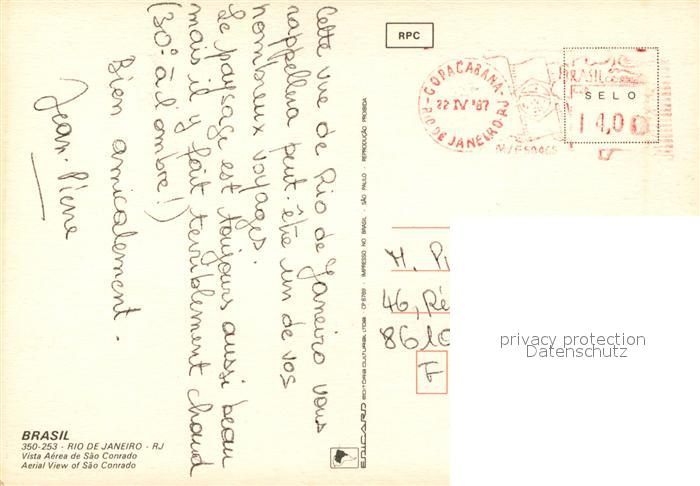 Cette vue de Rio de Janeiro vous
rappellera peut-être un de vos
nombreux voyages.
Le paysage est toujours aussi beau
mais il y fait terriblement chaud
(30° à l'ombre!)
Bien amicalement.
Jean-Pierre
BRASIL
350-253 - RIO DE JANEIRO - RJ
Vista Aérea de São Conrado
Aerial View of São Conrado
ERICARD EDITORA CULTURAL LTDA - CP 8789 - IMPRESSO NO BRASIL - SÃO PAULO - REPRODUÇÃO PROIBIDA
RPC
COPACABANA
22 IV '87
RIO DE JANEIRO-RJ
BRASIL CORREIO
SELO
14,00
M.
46, Ré
8610
F
privacy protection
Datenschutz